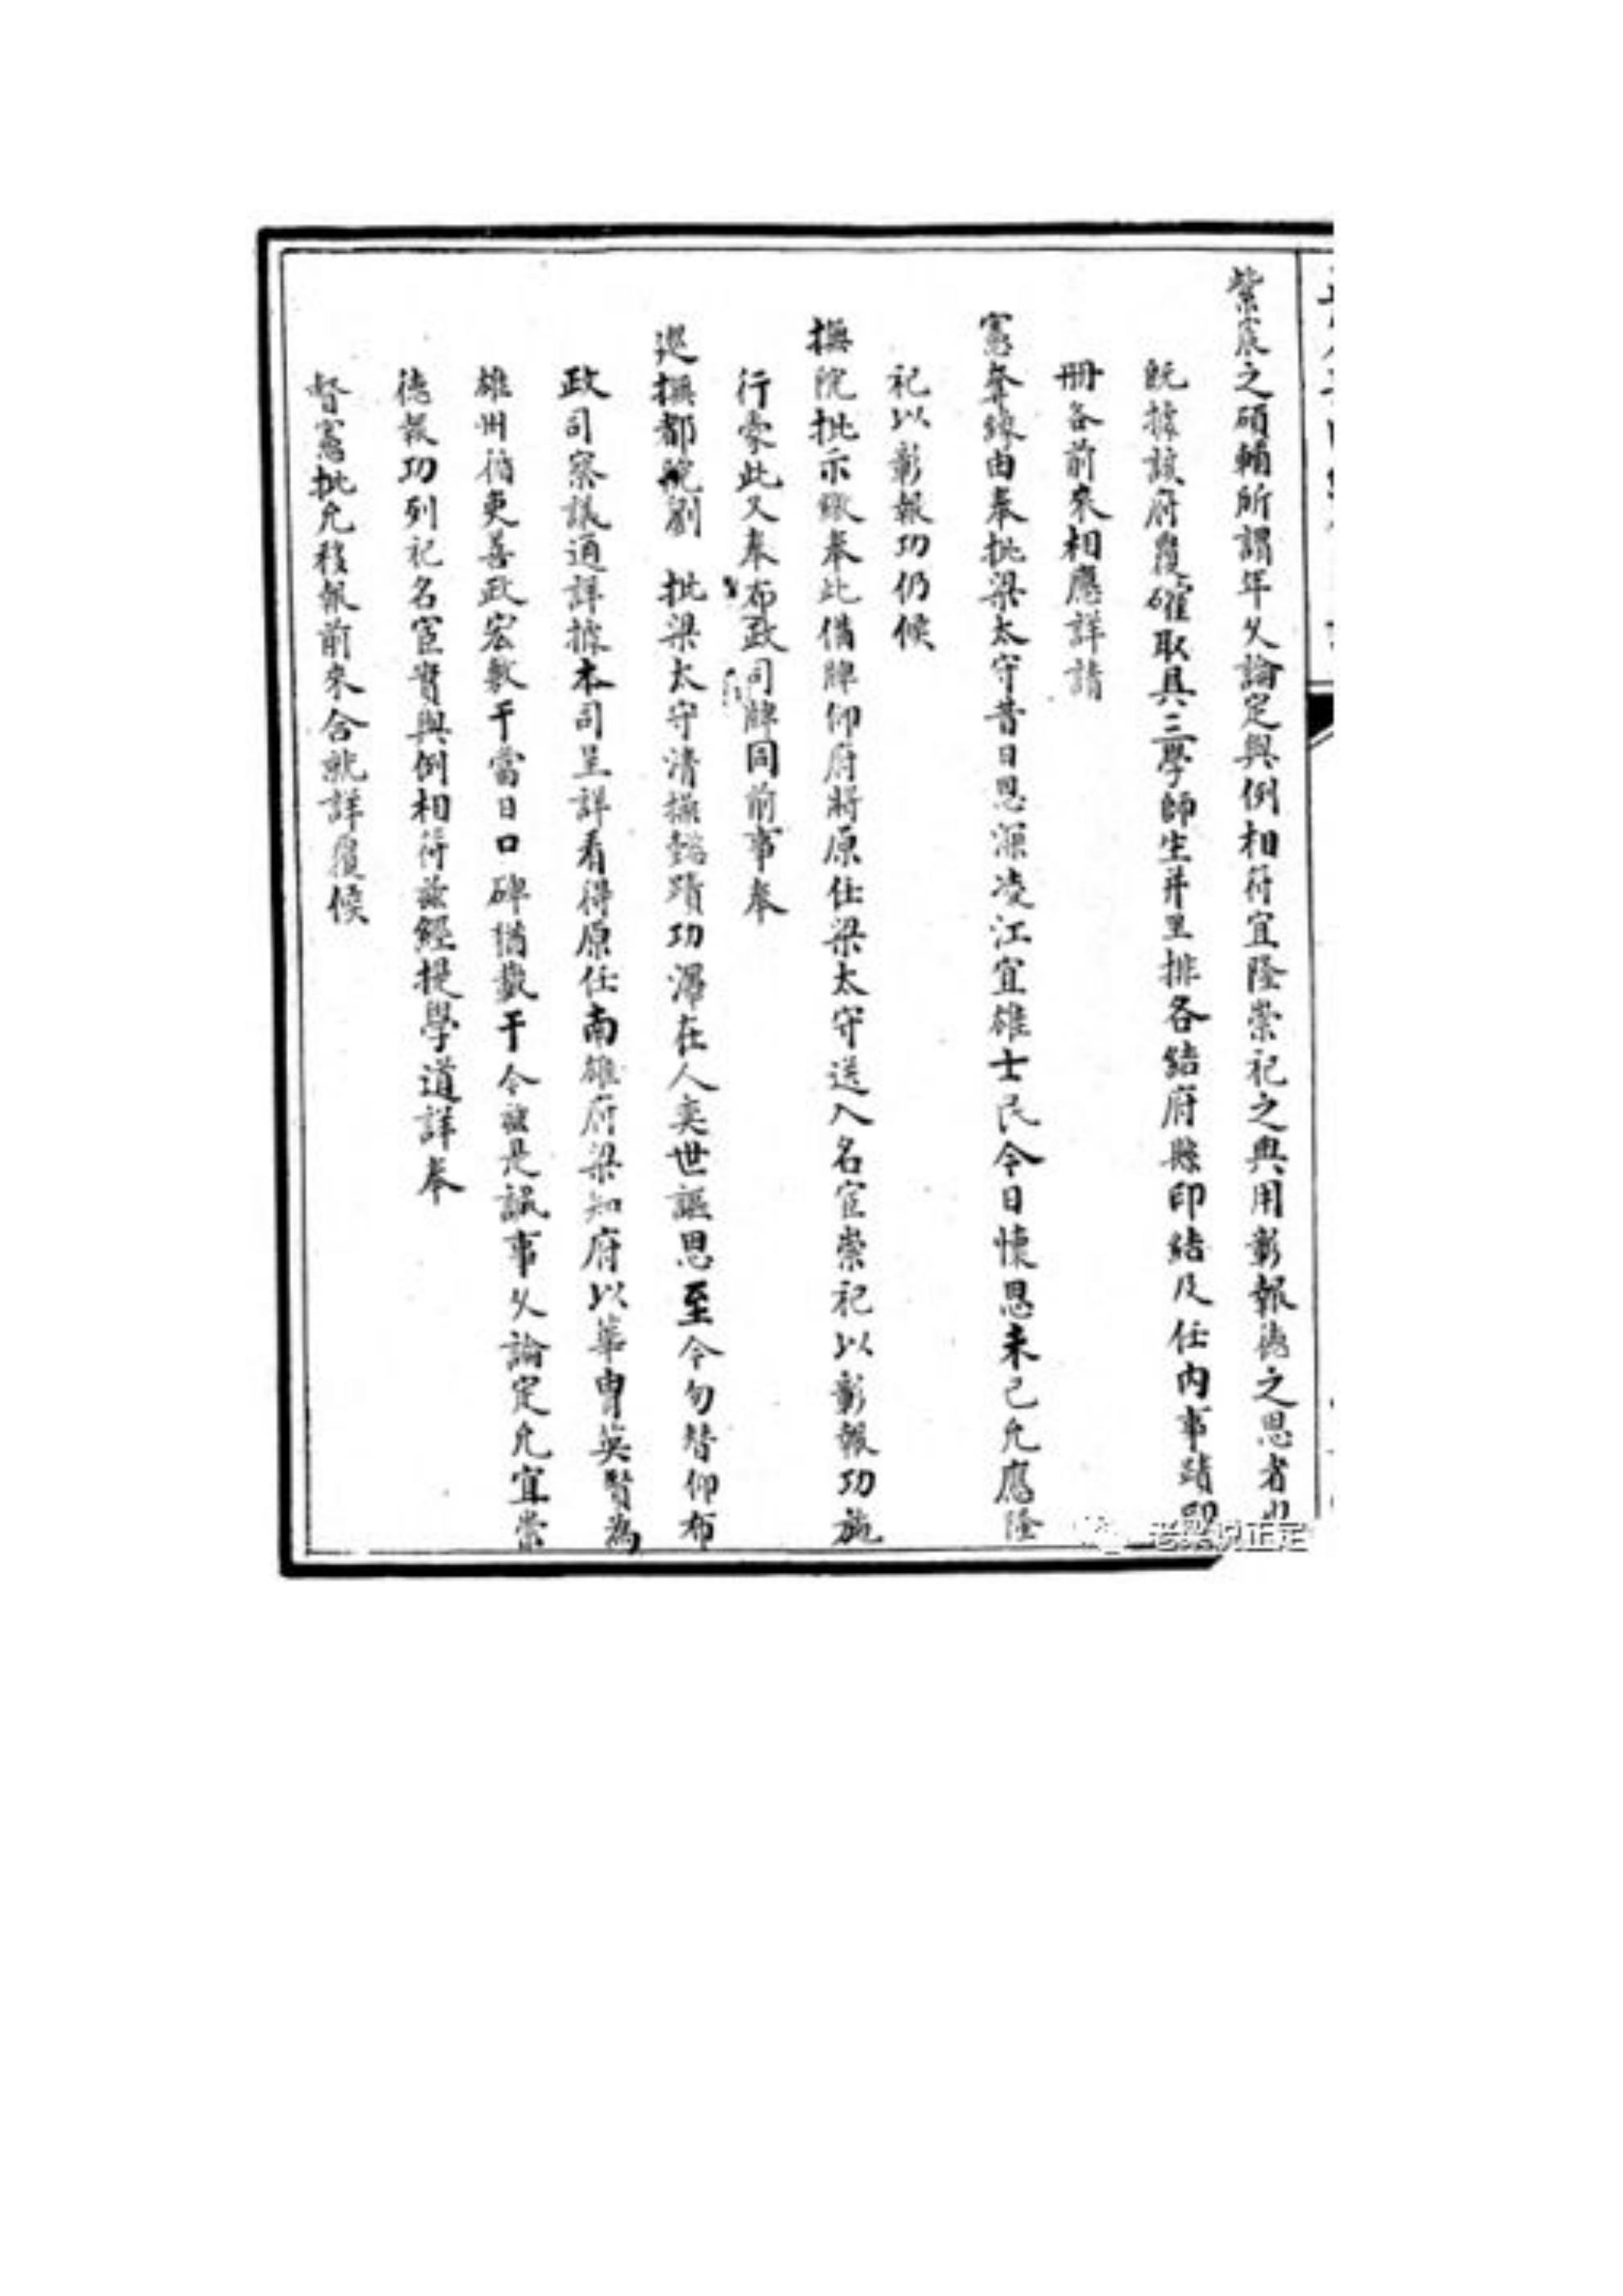 紫宸之碩輔所謂年久論定與例相符宜隆崇祀之典用彰報德之思者也
既據該府覆確取具三學師生并里排各結府縣印結及任內事蹟印
冊各前來相應詳請
憲奪緣由奉批梁太守昔日恩源凌江宜雄士民今日懷恩未已允應隆
祀以彰報功仍候
撫院批示繳奉此備牌仰府將原任梁太守送入名宦崇祀以彰報功施
行蒙此又奉布政司牌同前事奉
巡撫都院劉 批梁太守清操懿蹟功深在人奕世謳思至今勿替仰布
政司察議通詳據本司呈詳看得原任南雄府梁知府以華胄英賢為
雄州循吏善政宏敷于當日口碑猶載于今茲是誠事久論定允宜崇
德報功列祀名宦實與例相符茲經提學道詳奉
督憲批允移報前來合就詳覆候
老梁說正定